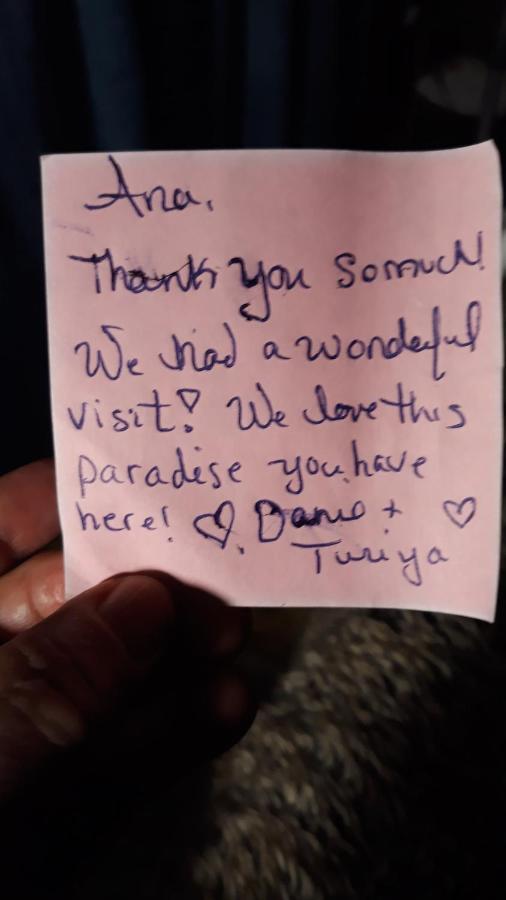 Ana,
Thank you so much!
We had a wonderful
visit! We love this
paradise you have
here! ♡ +♡
Turiya